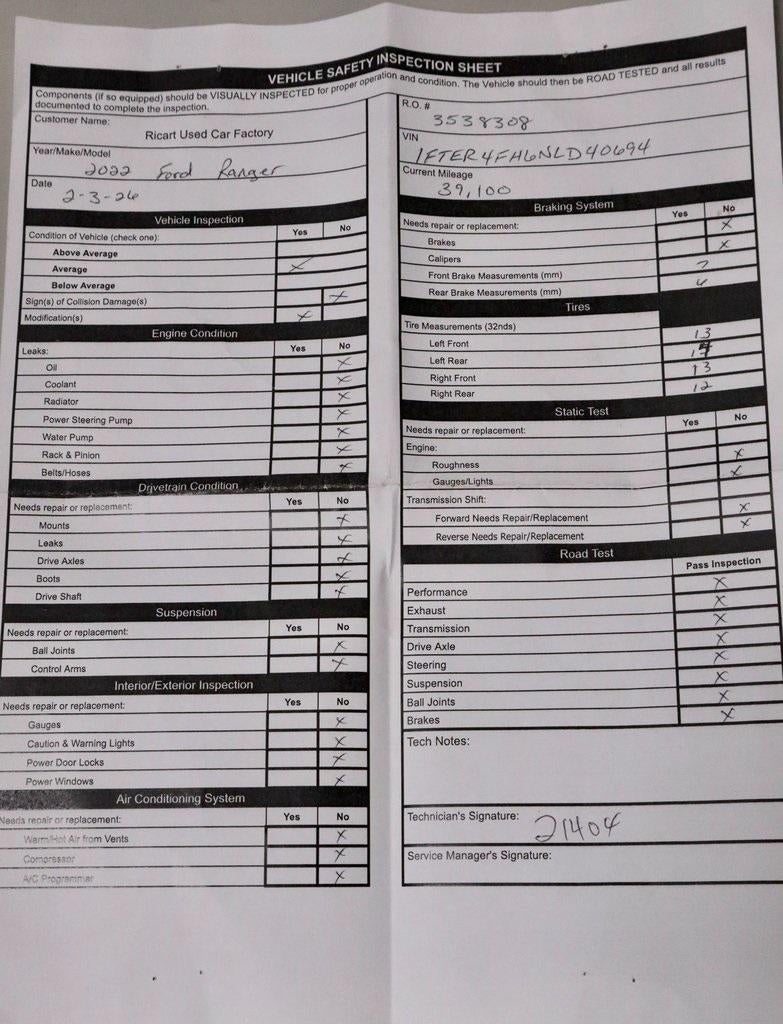 VEHICLE SAFETY INSPECTION SHEET
Components (if so equipped) should be VISUALLY INSPECTED for proper operation and condition. The Vehicle should then be ROAD TESTED and all results
documented to complete the inspection.
Customer Name:
Ricart Used Car Factory
Year/Make/Model
2022 Ford Ranger
Date
2-3-26
R.O. #
3538308
VIN
1FTER4FH6NLD40694
Current Mileage
39,100
Vehicle Inspection
Condition of Vehicle (check one): Yes No
Above Average
Average X
Below Average
Sign(s) of Collision Damage(s) X
Modification(s) X
Engine Condition
Leaks: Yes No
Oil X
Coolant X
Radiator X
Power Steering Pump X
Water Pump X
Rack & Pinion X
Belts/Hoses X
Drivetrain Condition
Needs repair or replacement: Yes No
Mounts X
Leaks X
Drive Axles X
Boots X
Drive Shaft X
Suspension
Needs repair or replacement: Yes No
Ball Joints X
Control Arms X
Interior/Exterior Inspection
Needs repair or replacement: Yes No
Gauges X
Caution & Warning Lights X
Power Door Locks X
Power Windows X
Air Conditioning System
Needs repair or replacement: Yes No
Warm/Hot Air from Vents X
Compressor X
A/C Programmer X
Braking System
Needs repair or replacement: Yes No
Brakes X
Calipers X
Front Brake Measurements (mm) 7
Rear Brake Measurements (mm)
Tires
Tire Measurements (32nds)
Left Front 13
Left Rear
Right Front 13
Right Rear 12
Static Test
Needs repair or replacement: Yes No
Engine:
Roughness X
Gauges/Lights X
Transmission Shift:
Forward Needs Repair/Replacement X
Reverse Needs Repair/Replacement X
Road Test
Pass Inspection
Performance X
Exhaust X
Transmission X
Drive Axle X
Steering X
Suspension X
Ball Joints X
Brakes X
Tech Notes:
Technician's Signature: 21404
Service Manager's Signature: